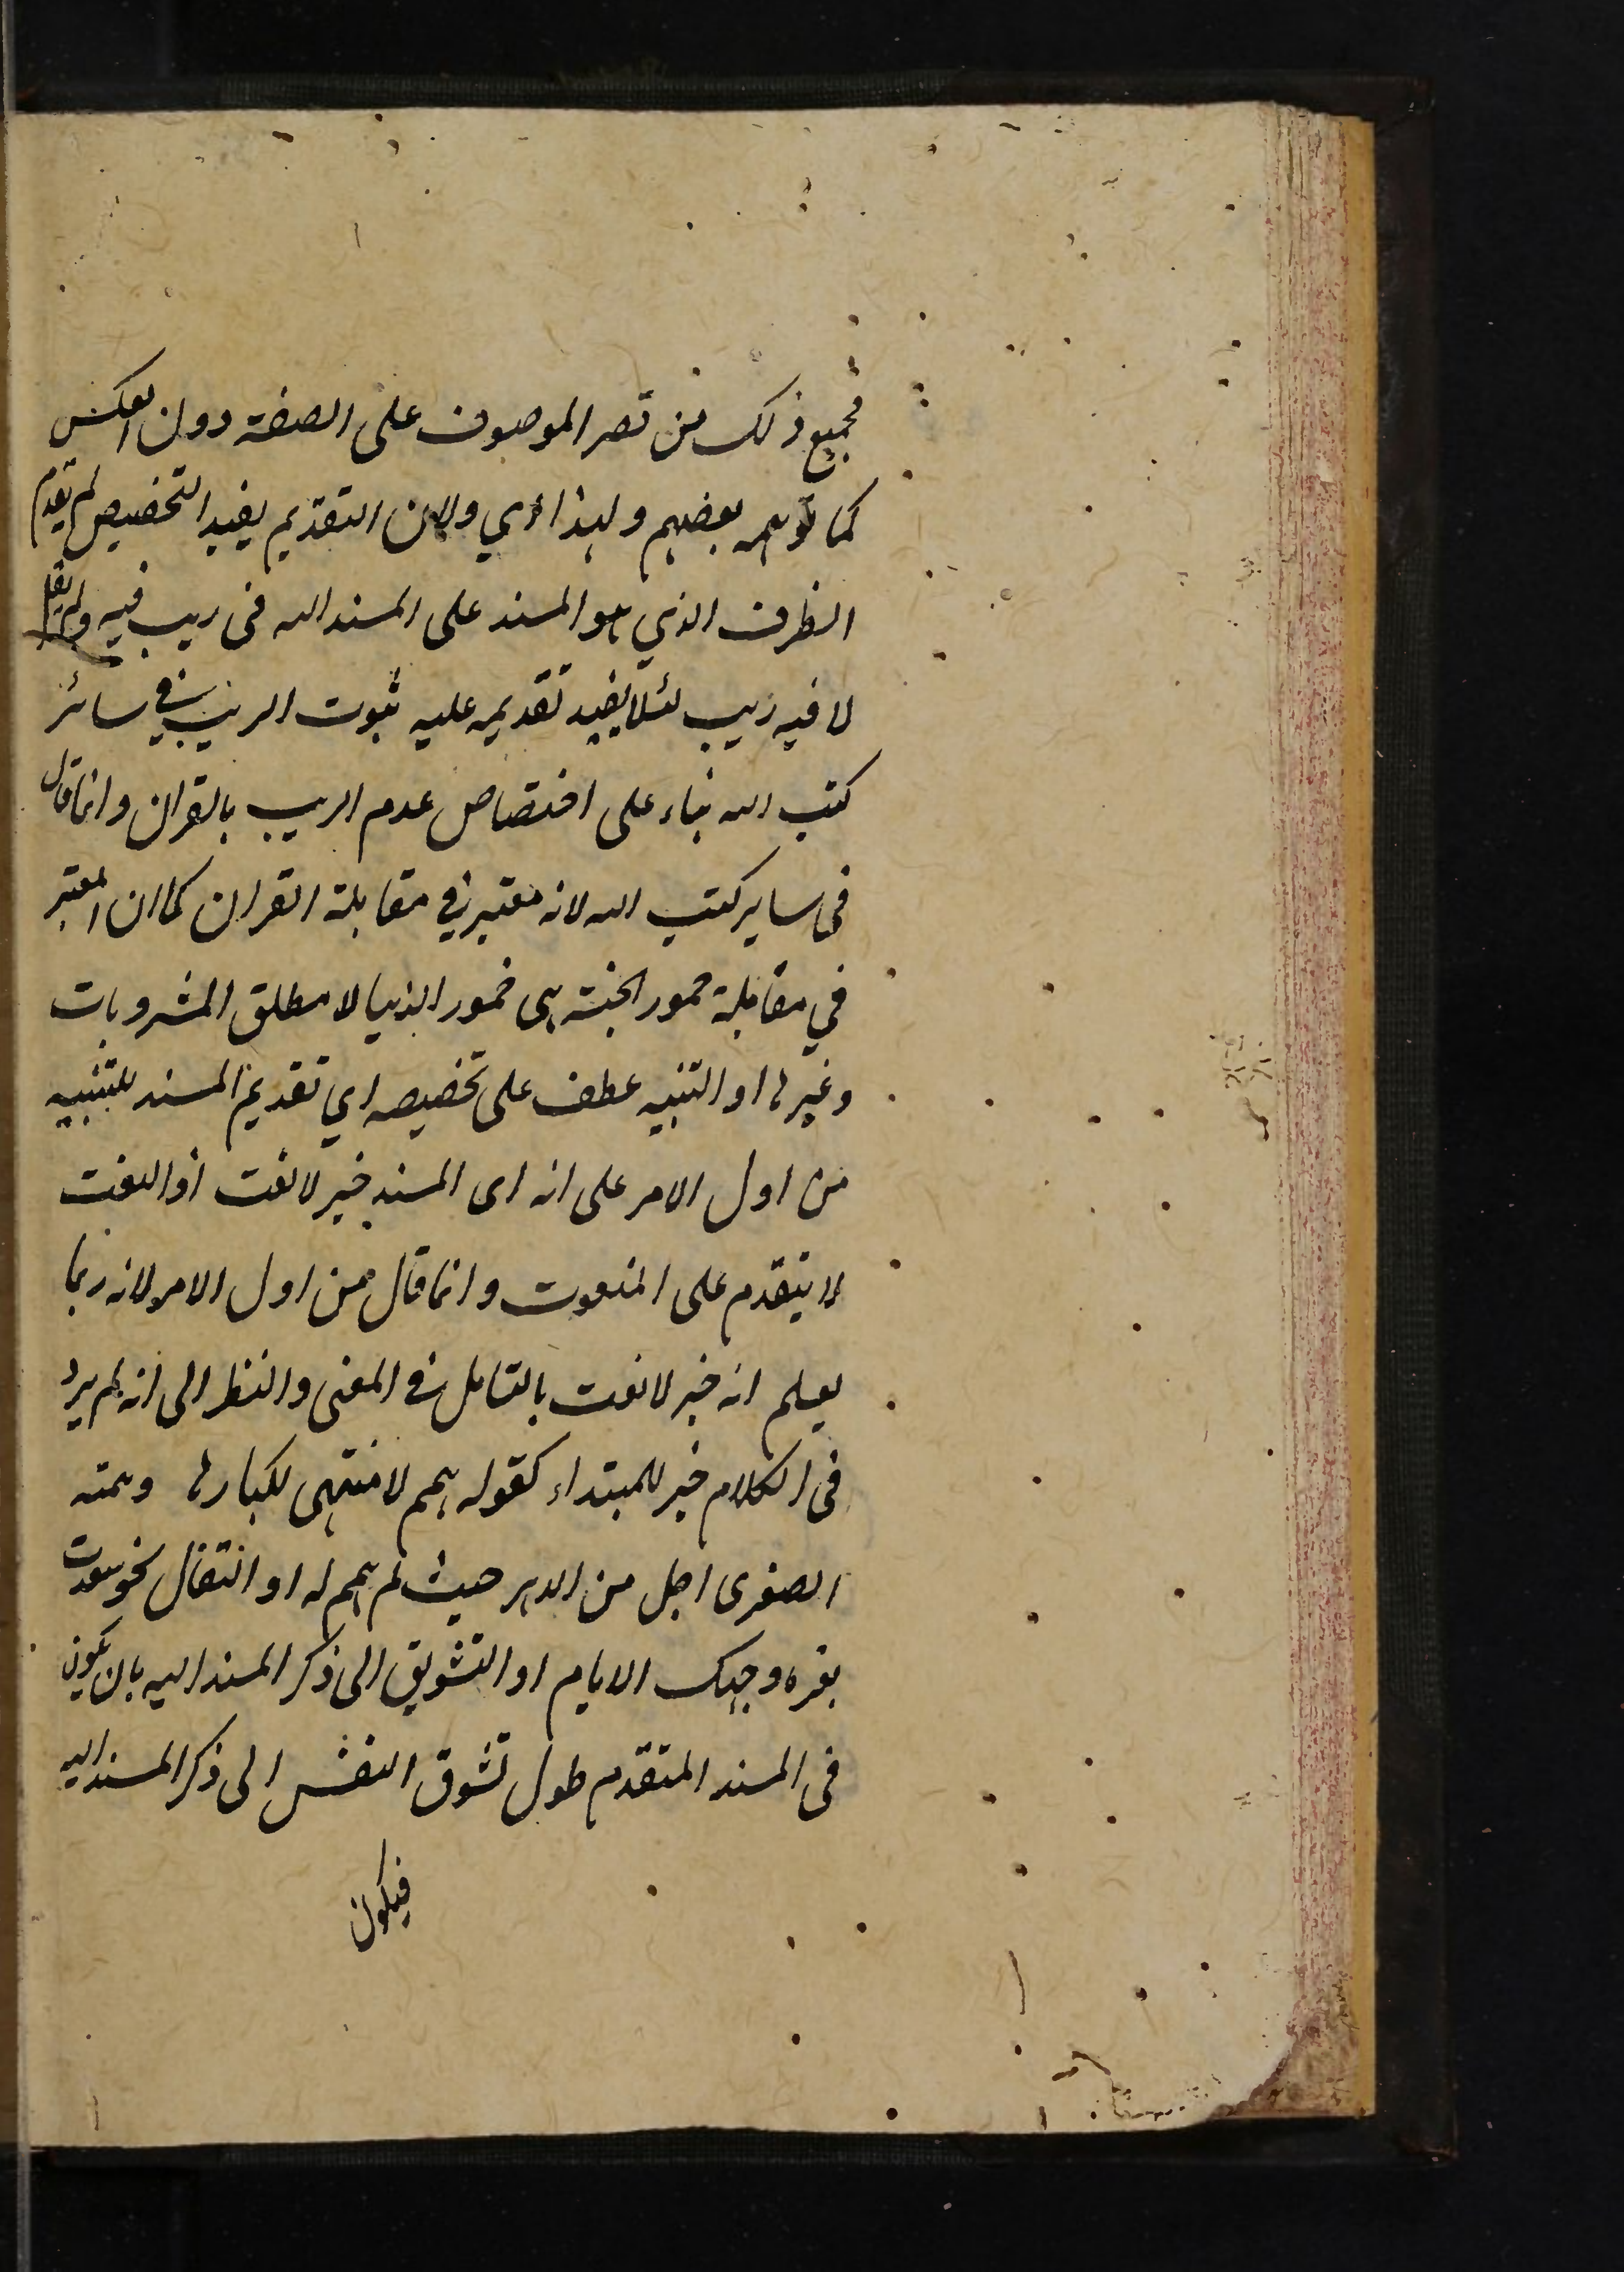 فجميع ذلك من قصر الموصوف على الصفة دون العكس
كما توهمه بعضهم ولهذا اي ولان التقديم يفيد التخصيص لم يقدم
الظرف الذي هو المسند على المسند اليه فى ريب فيه ولم يقل
لا فيه ريب لئلا يفيد تقديمه عليه ثبوت الريب في سائر
كتب الله بناء على اختصاص عدم الريب بالقران وانما قال
فى ساير كتب الله لانه معتبر في مقابلة القران كما ان المعتبر
في مقابلة خمور الجنة هى خمور الدنيا لا مطلق المشروبات
وغيرها او التنبيه عطف على تخصيصه اي تقديم المسند للتنبيه
من اول الامر على انه اى المسند خبر لا نعت اذ النعت
لا يتقدم على المنعوت وانما قال من اول الامر لانه ربما
يعلم انه خبر لا نعت بالتامل في المعنى والنظر الى انه لم يرد
فى الكلام خبر للمبتداء كقوله همم لا منتهى لكبارها وهمته
الصغرى اجل من الدهر حيث لم همم له او التفال نحو سعدت
بغره وجهك الايام او التشويق الى ذكر المسند اليه بان يكون
فى المسند المتقدم طول تشوق النفس الى ذكر المسند اليه
فيكون